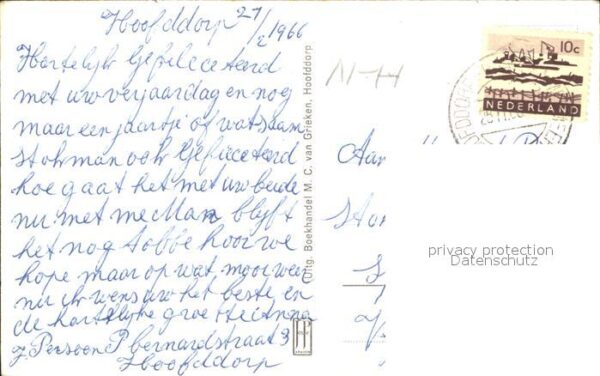 Hoofddorp 27/2 1966
Hartelijk Gefeleceteerd
met uw verjaardag en nog
maar een jaartje of wat saam
ook Gefeleceteerd
hoe gaat het met uw beide
nu met me Man blyft
het nog tobbe hoor we
hope maar op wat mooi weer
nu ik wens uw het beste en
de hartelyke groete
Persoon P bernardstraat 3
Hoofddorp
Uitg. Boekhandel M. C. van Grieken, Hoofddorp
N-44
10c
NEDERLAND
Aan
privacy protection
Datenschutz